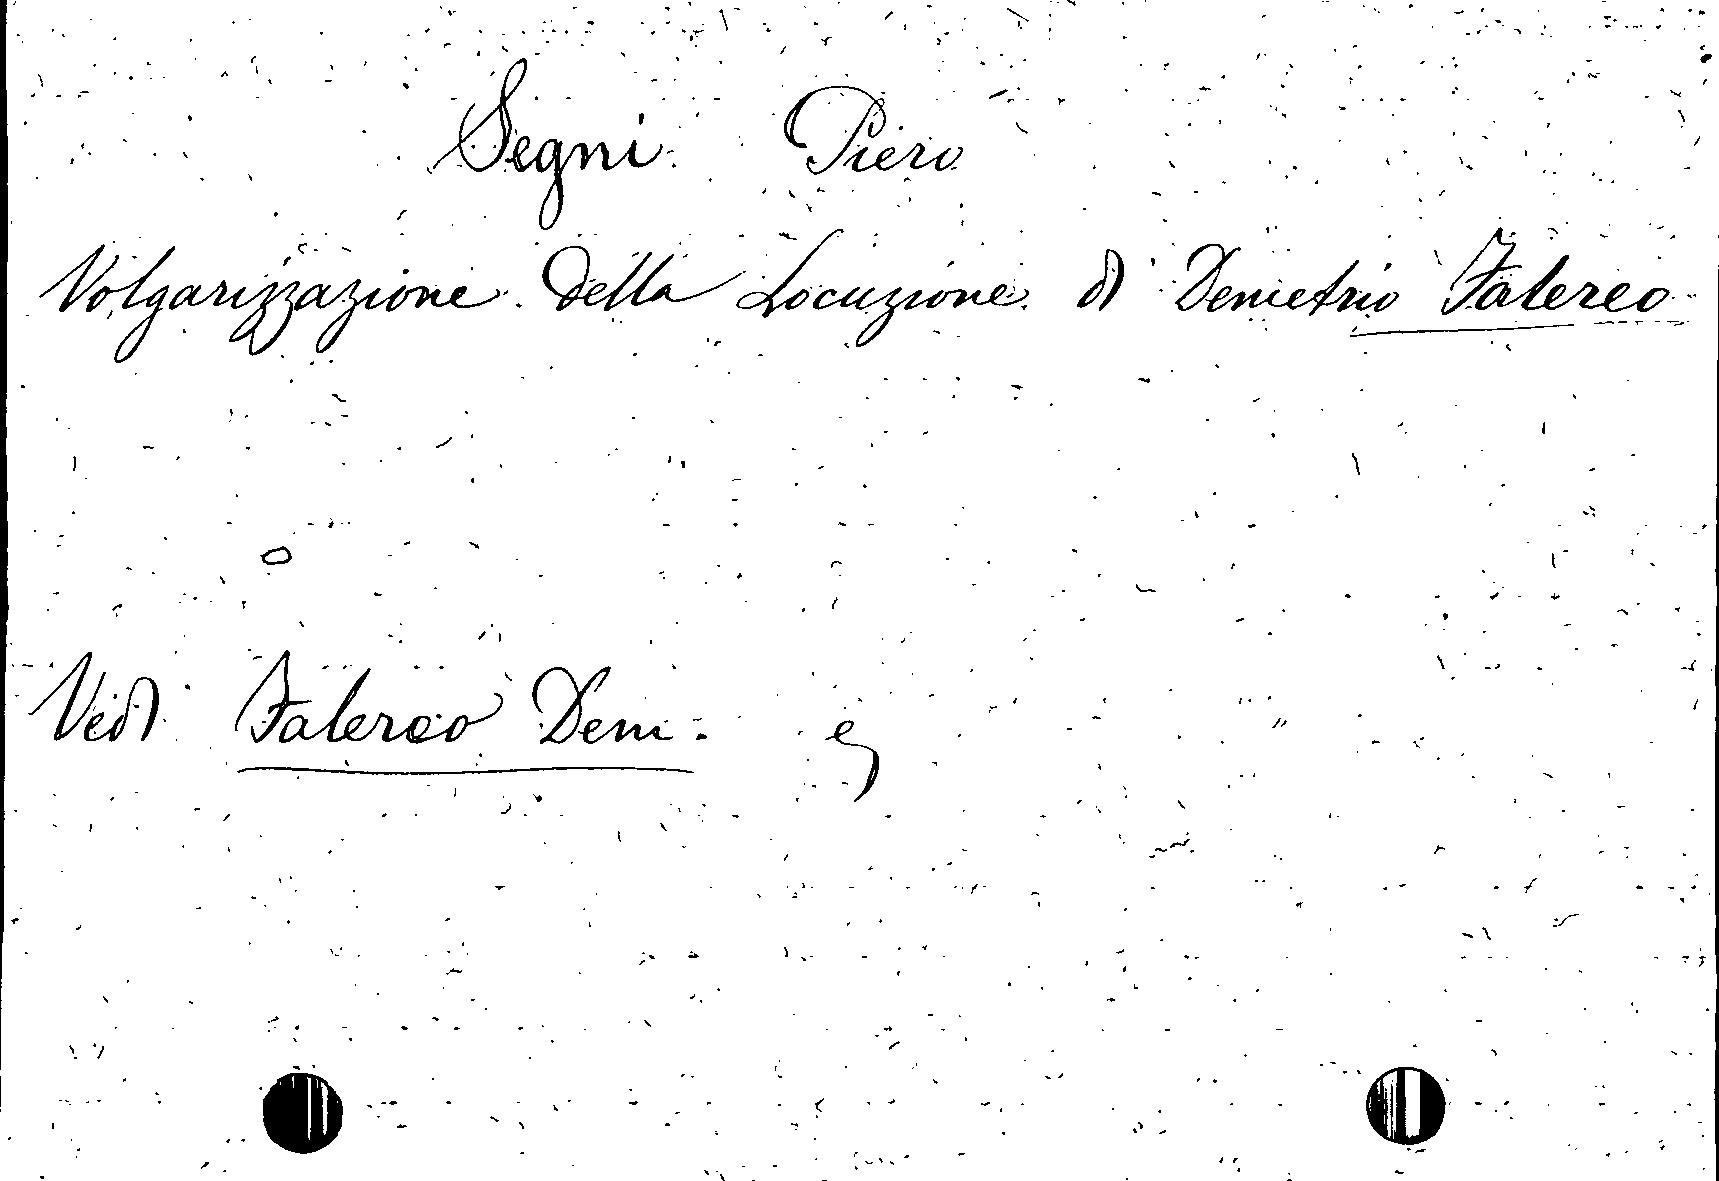 Segni Piero
Volgarizzazione della Locuzione di Demetrio Falereo
Vedi Falereo Dem.